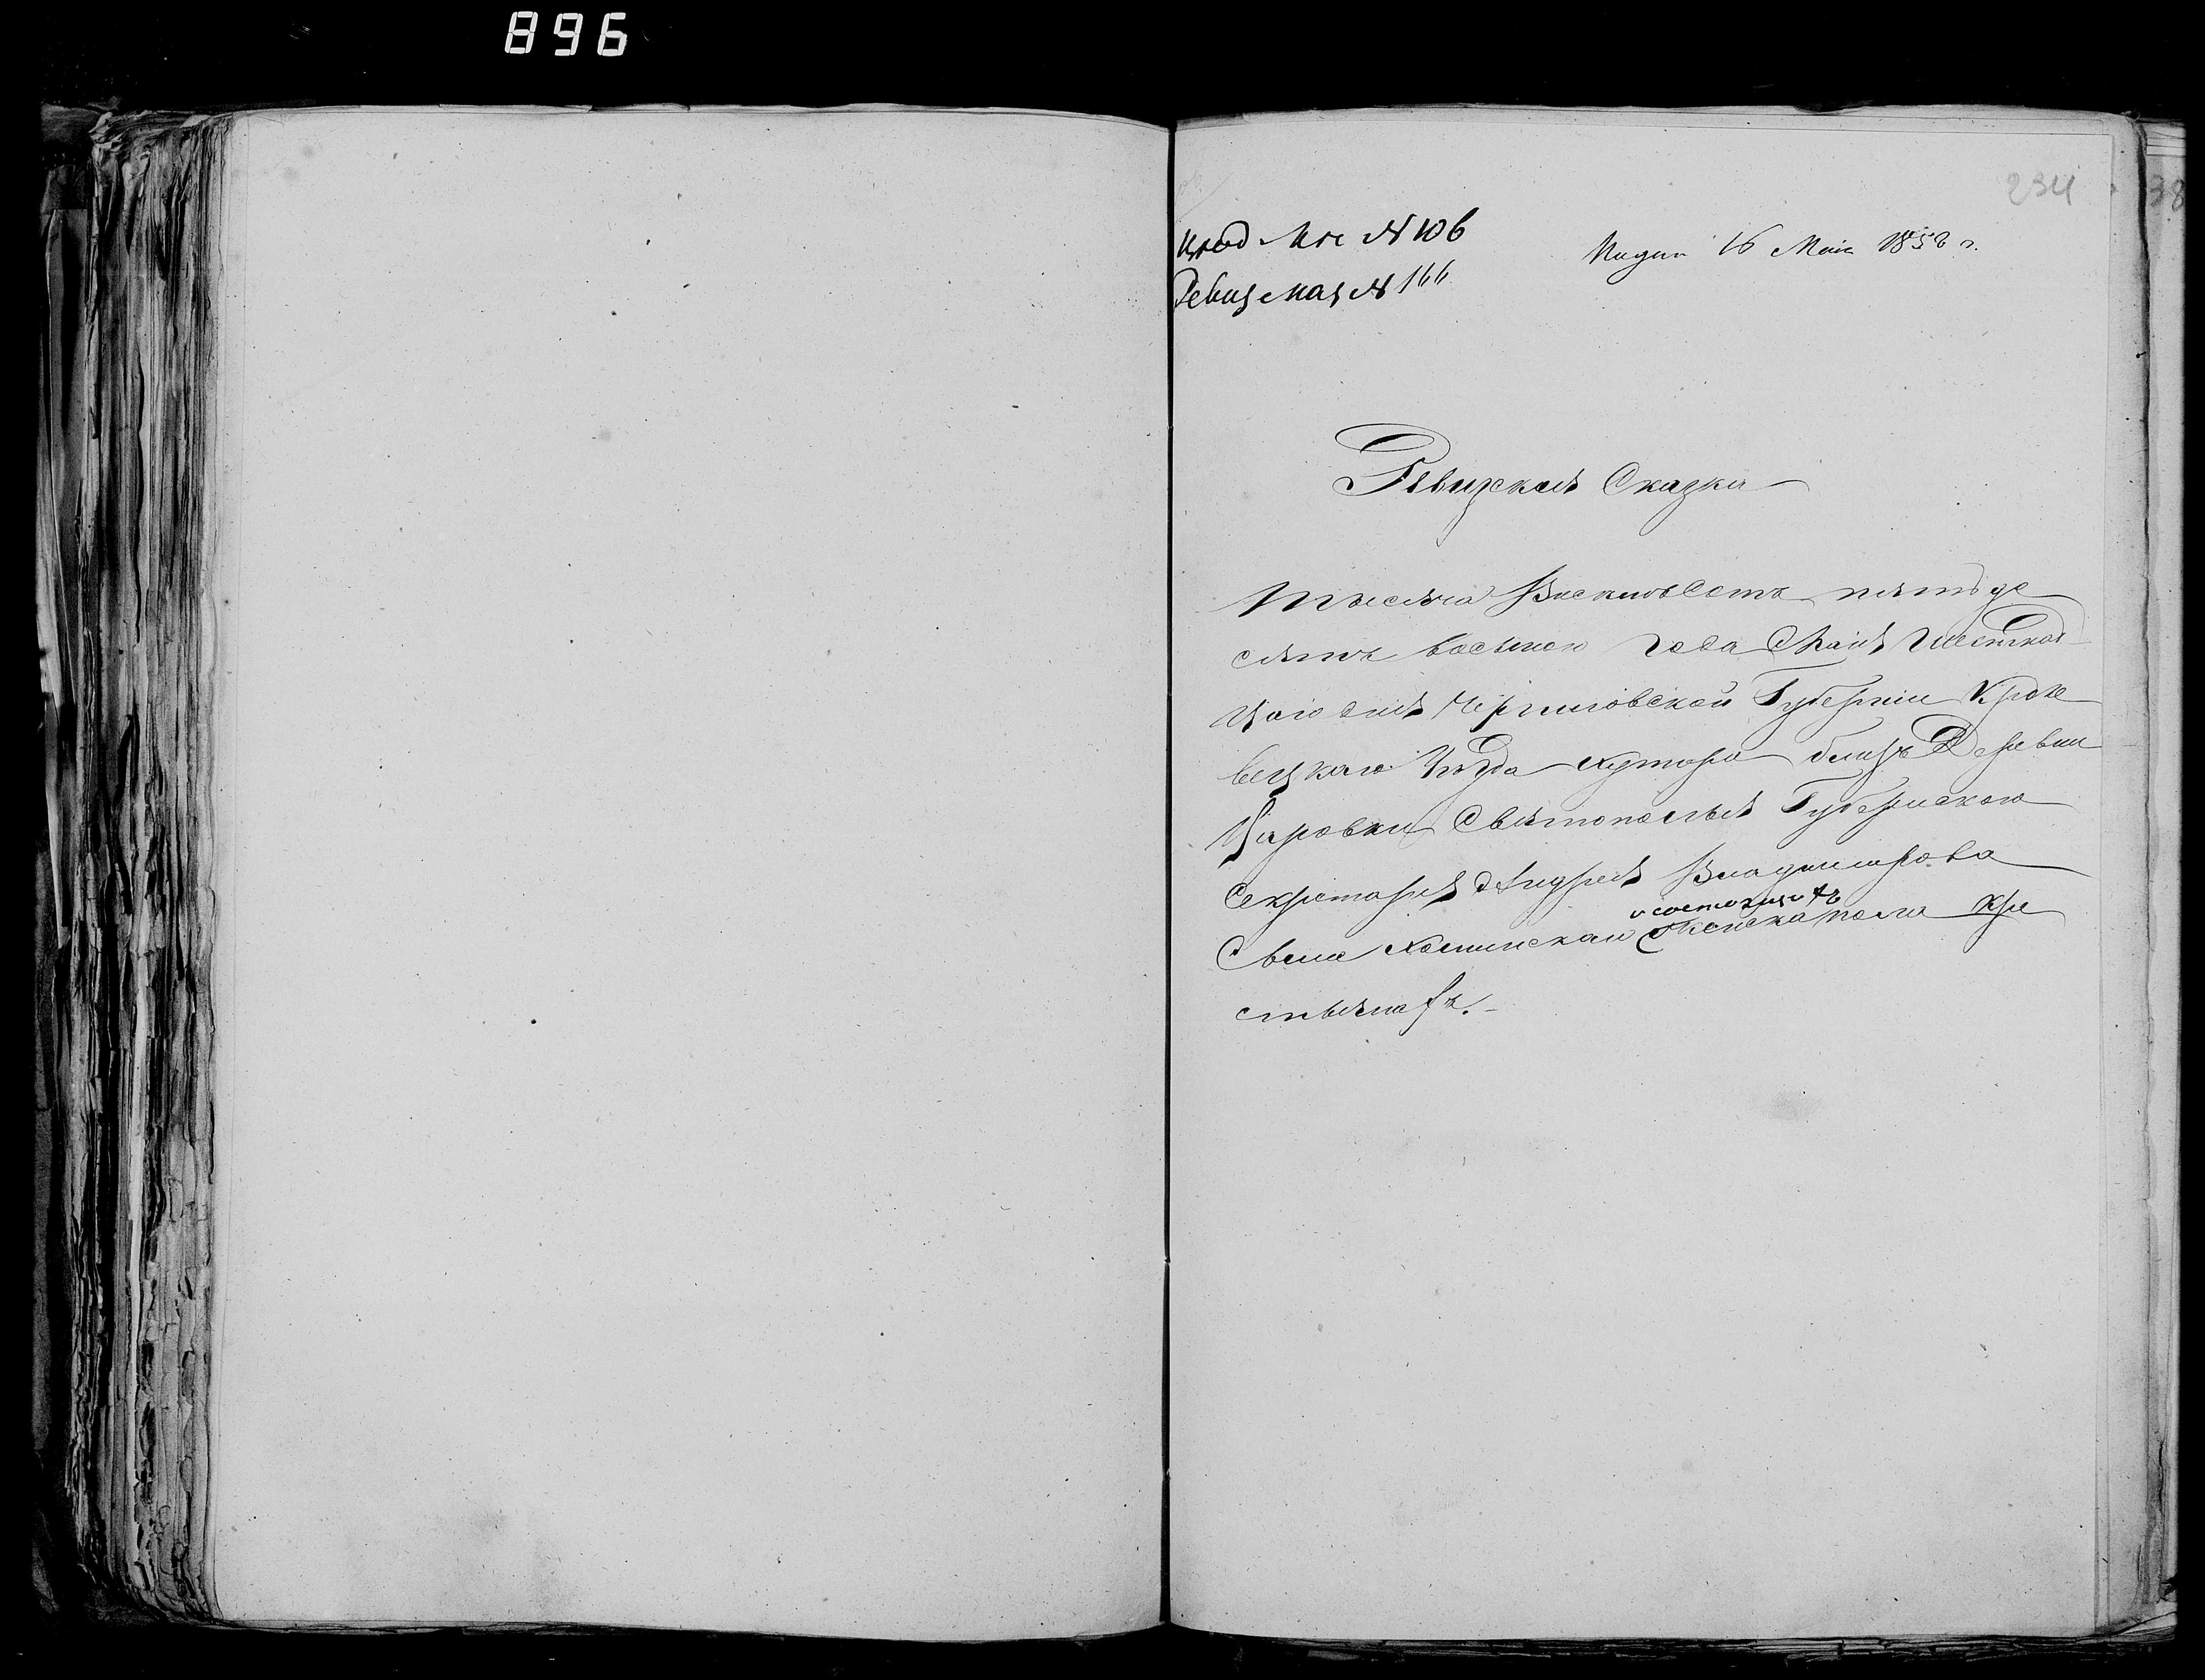 896
234
38
№ 106
Ревизская № 166
Подан 16 Мая 1858 г.
Ревизская Сказка
Тысяча Восемьсотъ пятьде
сятъ восьмого Года Мая Шестнад
цатого дня Черниговской Губерніи Кроле
вецкаго Уѣзда хутора близъ Деревни
Царовки Святополья Губернского
Секретаря Андрея Владимирова
сына о состоящихъ
Кре
стьянахъ.